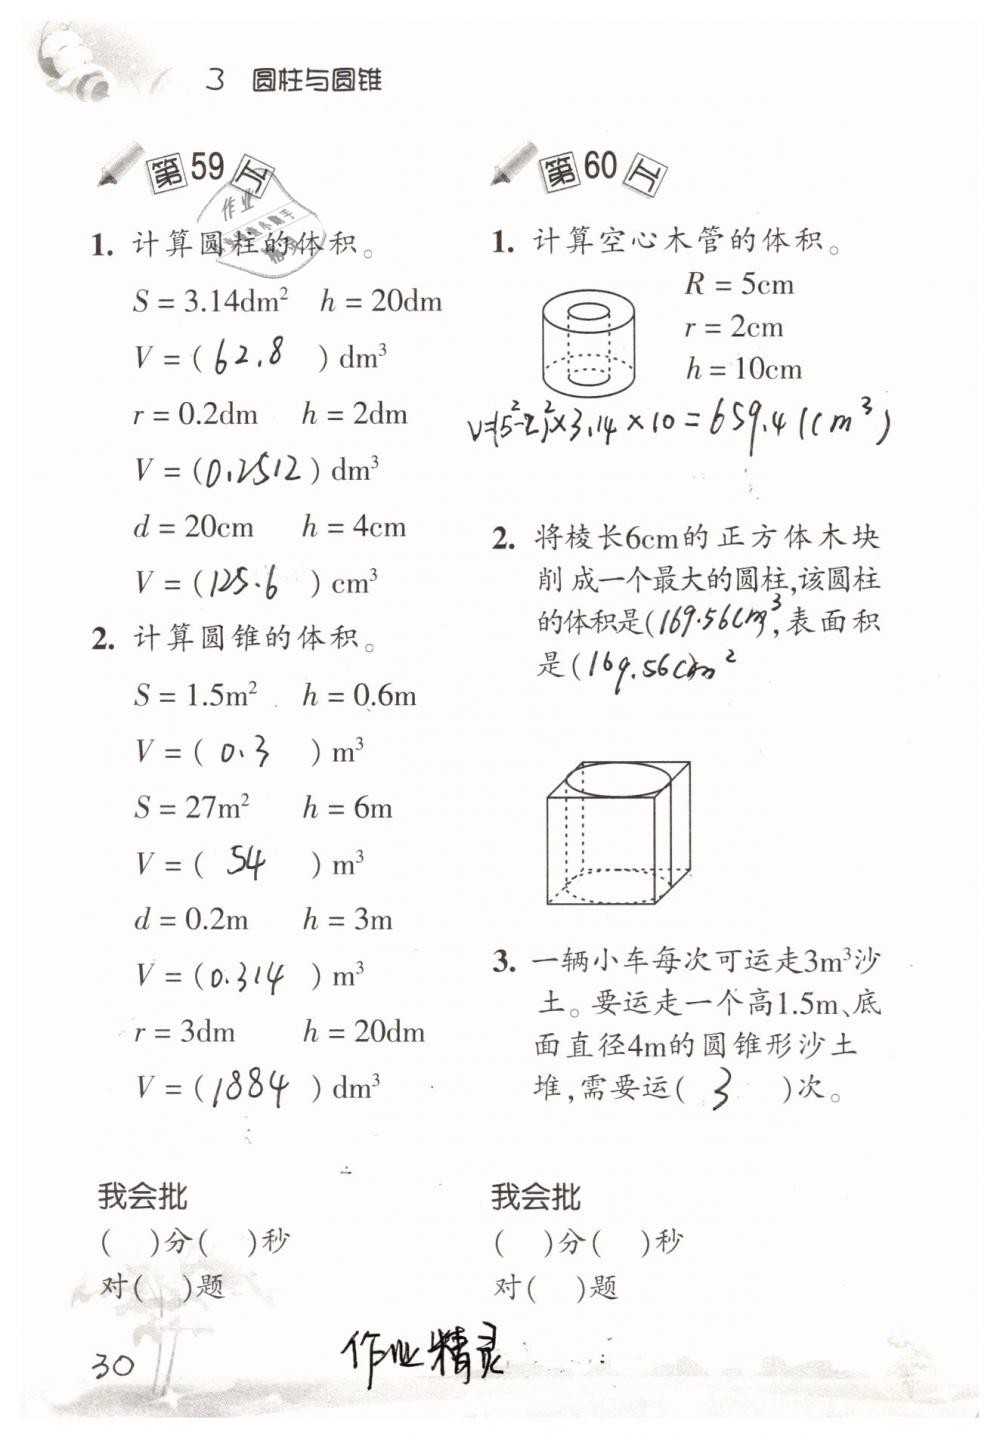 3 圆柱与圆锥
第59天
1. 计算圆柱的体积。
S = 3.14dm² h = 20dm
V = ( 62.8 ) dm³
r = 0.2dm h = 2dm
V = (0.2512) dm³
d = 20cm h = 4cm
V = (125.6) cm³
2. 计算圆锥的体积。
S = 1.5m² h = 0.6m
V = ( 0.3 ) m³
S = 27m² h = 6m
V = ( 54 ) m³
d = 0.2m h = 3m
V = (0.314) m³
r = 3dm h = 20dm
V = (1884) dm³
我会批
( )分( )秒
对( )题
第60天
1. 计算空心木管的体积。
R = 5cm
r = 2cm
h = 10cm
V=(5²-2²)×3.14×10=659.4(cm³)
2. 将棱长6cm的正方体木块
削成一个最大的圆柱,该圆柱
的体积是(169.56cm³,表面积
是(169.56cm²
3. 一辆小车每次可运走3m³沙
土。要运走一个高1.5m、底
面直径4m的圆锥形沙土
堆,需要运( 3 )次。
我会批
( )分( )秒
对( )题
作业精灵
30